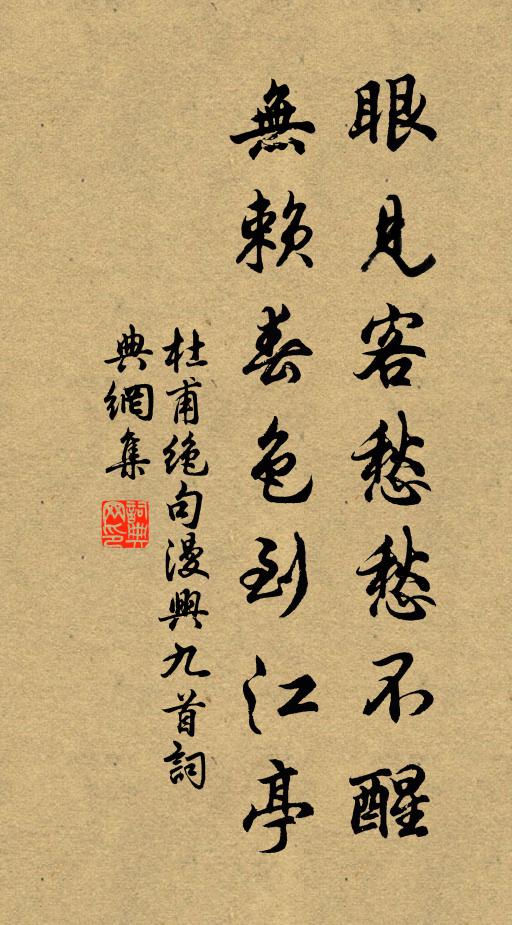 眼見客愁愁不醒
無賴春色到江亭
杜甫絕句漫興九首詞
典網集
詞典
网印